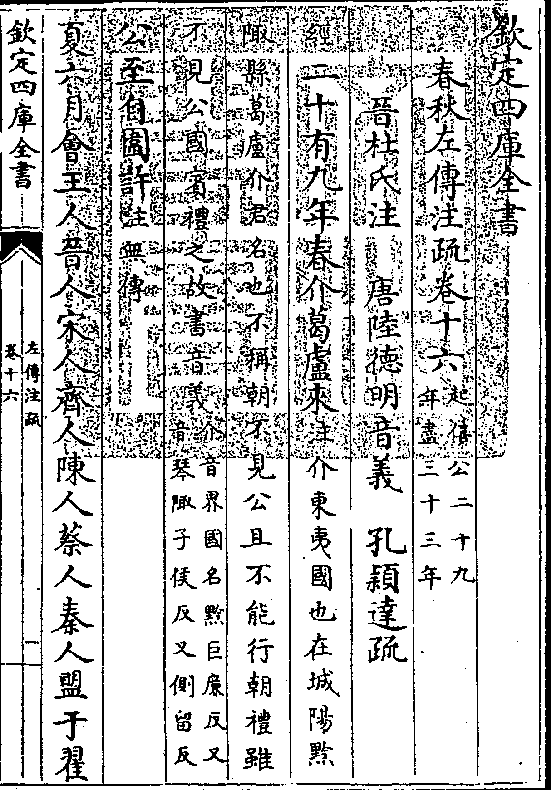 欽定四庫全書
春秋左傳注疏卷十六
起僖公二十九
年盡三十三年
晉杜氏注 唐陸德明音義 孔穎達疏
經
二十有九年春介葛盧來注介東夷國也在城陽黔
陬縣葛盧介君名也不稱朝不見公且不能行朝禮雖
不見公國賓禮之故書音義
介音界國名黔巨廉反又
音琴陬子侯反又側留反
公至自圍許注無傳
夏六月會王人晉人宋人齊人陳人蔡人秦人盟于翟
欽定四庫全書
左傳注疏
卷十六
一